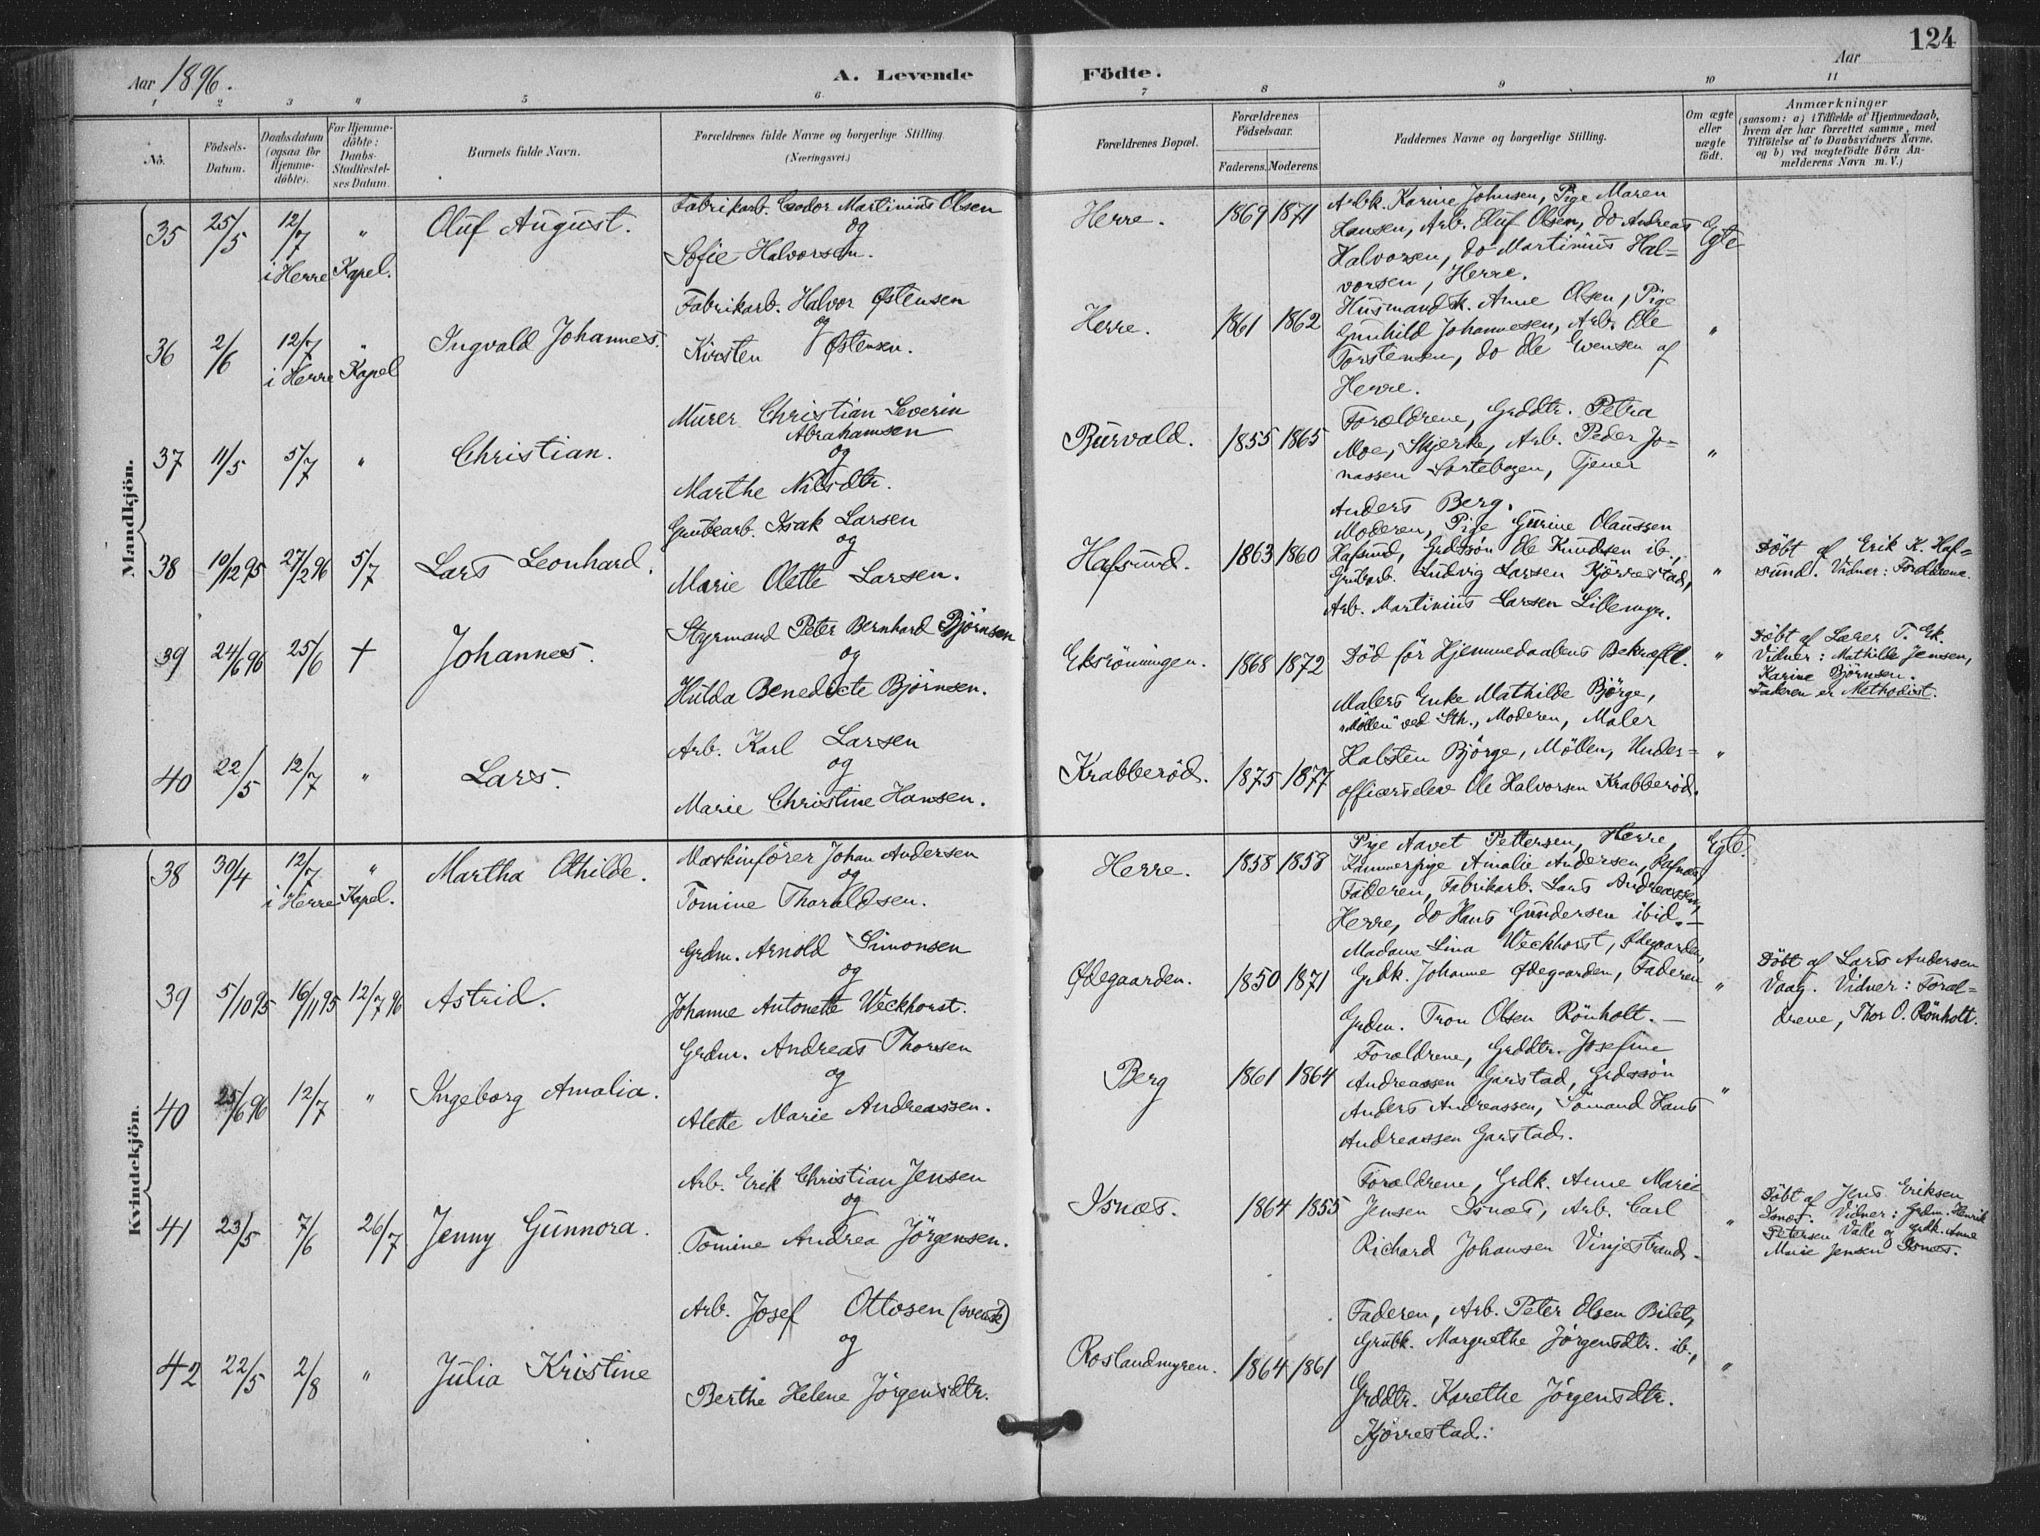 124
Aar 1896.
A. Levende Födte.
Aar
1 2 3 4 5 6 7 8 9 10 11
No.
Födsels-Datum.
Daabsdatum (ogsaa for Hjemme-döbte).
For Hjemme-döbte: Daabs-Stadfæstel-ses Datum.
Barnets fulde Navn.
Forældrenes fulde Navne og borgerlige Stilling.
(Næringsvei.)
Forældrenes Bopæl.
Forældrenes Födselsaar.
Faderens. Moderens
Faddernes Navne og borgerlige Stilling.
Om ægte eller uægte födt.
Anmærkninger
(saasom: a) i Tilfælde af Hjemmedaab, hvem der har forrettet samme, med Tilföielse af to Daabsvidners Navne, og b) ved uægtefödte Börn An-melderens Navn m. V.)
Mandkjön.
35 25/5 12/7 i Herre Kapel. "
Oluf August.
Fabrikarb. Martinius Olsen
og
Sofie Halvorsen.
Herre. 1869 1871
Arbk. Karine Johnsen, Pige Maren
Hansen, Arb. Oluf Olsen, do Andreas
Halvorsen, do Martinius Hal=
vorsen, Herre.
Egte
36 2/6 12/7 i Herre Kapel "
Ingvald Johannes.
Fabrikarb. Halvor Østensen
og
Kirsten Østensen.
Herre. 1861 1862
Husmandsk. Anne Olsen, Pige
Gunhild Johannesen, Arb. Ole
Torstensen, do Ole Evensen af
Herre.
"
37 11/5 5/7 "
Christian.
Murer Christian Severin
Abrahamsen
og
Marthe Nilsdtr.
Burvald. 1855 1865
Forældrene, Grddtr. Petra
Moe, Skjerke, Arb. Peder Jo-
nassen Sortebogen, Tjener
Anders Berg.
"
38 10/12 95 27/2 96 5/7
Lars Leonhard.
Grubearb. Isak Larsen
og
Marie Olette Larsen.
Hafsund. 1863 1860
Moderen, Pige Gurine Olaussen
Hafsund, Grdssøn Ole Knudsen ib.,
Grubarb. Ludvig Larsen Kjörrestad,
Arb. Martinius Larsen Lillemyr.
"
Döbt af Erik K. Haf=
sund. Vidner: Forældrene.
39 24/6 96 25/6 +
Johannes.
Styrmand Peter Bernhard Björnsen
og
Hulda Benedicte Björnsen.
Eksröningen. 1868 1872
Död før Hjemmedaabens Bekræft.
"
Döbt af Lærer T. Ek.
Vidner: Mathilde Jensen,
Karine Björnsen.
Faderen er Methodist.
40 22/5 12/7 "
Lars.
Arb. Karl Larsen
og
Marie Christine Hansen.
Krabberöd. 1875 1877
Malers Enke Mathilde Björge,
"Möllen" ved Sth., Moderen, Maler
Halsten Björge, Möllen, Under=
officerselev Ole Halvorsen Krabberöd.
"
Kvindekjön.
38 30/4 12/7 i Herre Kapel. "
Martha Othilde.
Maskinfører Johan Andersen
og
Tomine Thoraldsen.
Herre. 1858 1858
Pige Aavet Pettersen, Herre,
Kammerpige Amalie Andersen,
Faderen, Fabrikarb. Lars Andreassen,
Herre, do Hans Gundersen ibid. —
Egte.
39 5/10 95 16/11 95 12/7 96
Astrid.
Grdm. Arnold Simonsen
og
Johanne Antonette Weckhorst.
Ødegaarden. 1850 1871
Madame Lina Weckhorst, Ødegaarden,
Grdk. Johanne Ødegaarden, Faderen
Grdm. Tron Olsen Rönholt. —
"
Döbt af Lars Andersen
Vaag. Vidner: Foræl=
drene, Thor O. Rönholt.
40 25/6 96 12/7 "
Ingeborg Amalia.
Grdm. Andreas Thorsen
og
Alette Marie Andreassen.
Berg 1861 1864
Forældrene, Grddtr. Josefine
Andreassen Garstad, Grdssøn
Anders Andreassen, Sömand Hans
Andreassen Garstad.
"
41 23/5 7/6 26/7
Jenny Gunnora.
Arb. Erik Christian Jensen
og
Tomine Andrea Jörgensen.
Isnæs. 1864 1855
Forældrene, Grdk. Anne Marie
Jensen Isnæs, Arb. Carl
Richard Johansen Vinjestrand.
"
Döbt af Jens Eriksen
Isnæs. Vidner: Grdm. Henrik
Petersen Valle og Grdk. Anne
Marie Jensen Isnæs.
42 22/5 2/8 "
Julia Kristine
Arb. Josef Ottosen (svensk)
og
Berthe Helene Jörgensdtr.
Roslandmyren. 1864 1861
Faderen, Arb. Peter Olsen Bilet,
Grubk. Margrethe Jörgensdtr. ib.,
Grddtr. Karethe Jörgensdtr.
Kjörrestad.
"